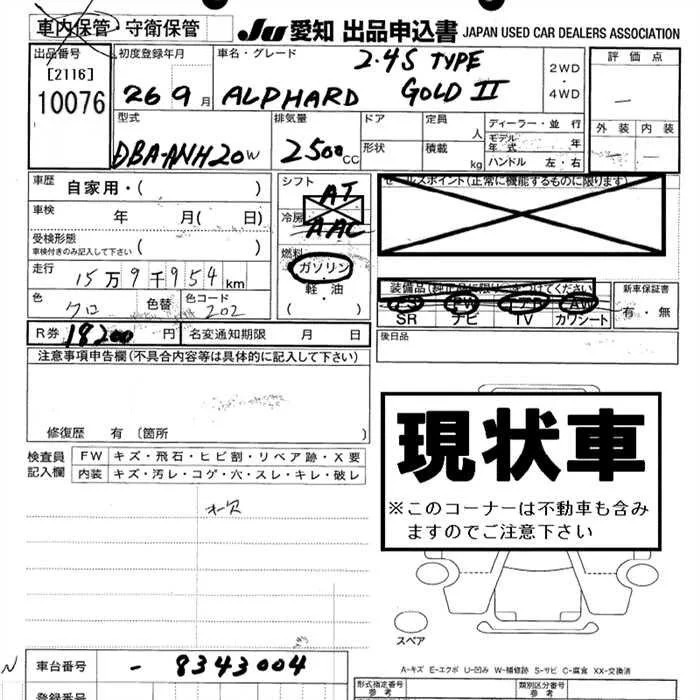 車内保管・守衛保管 JU 愛知 出品申込書 JAPAN USED CAR DEALERS ASSOCIATION
出品番号 [2116] 10076
初度登録年月 26 9月
車名・グレード ALPHARD 2.4S TYPE GOLD II
2WD・4WD
評価点 —
外装 — 内装 —
型式 DBA-ANH20W
排気量 2500cc
ドア 定員 人
形状 積載 kg
ディーラー・並行
モデル年式 年
ハンドル 左・右
車歴 自家用・( )
車検 年 月( 日)
受検形態 車検付きのみ記入して下さい ( )
走行 15万9千954km
色 クロ 色替 色コード 202
R券 18200円 名変通知期限 月 日
シフト AT
冷房 AAC
燃料 ガソリン・軽・油
( )
セールスポイント(正常に機能するものに限ります)
装備品(純正品に限り○をつけてください)
PS PW エアB AW
SR ナビ TV カワシート
新車保証書 有・無
後日品
注意事項申告欄(不具合内容等は具体的に記入して下さい)
修復歴 有〔箇所 〕
検査員記入欄
FW キズ・飛石・ヒビ割・リペア跡・X要
内装 キズ・汚レ・コゲ・穴・スレ・キレ・破レ
現状車
※このコーナーは不動車も含みますのでご注意下さい
スペア
A-キズ E-エクボ U-凹み W-補修跡 S-サビ C-腐食 XX-交換済
N 車台番号 - 8343004
登録番号
形式指定番号 参考
類別区分番号 参考